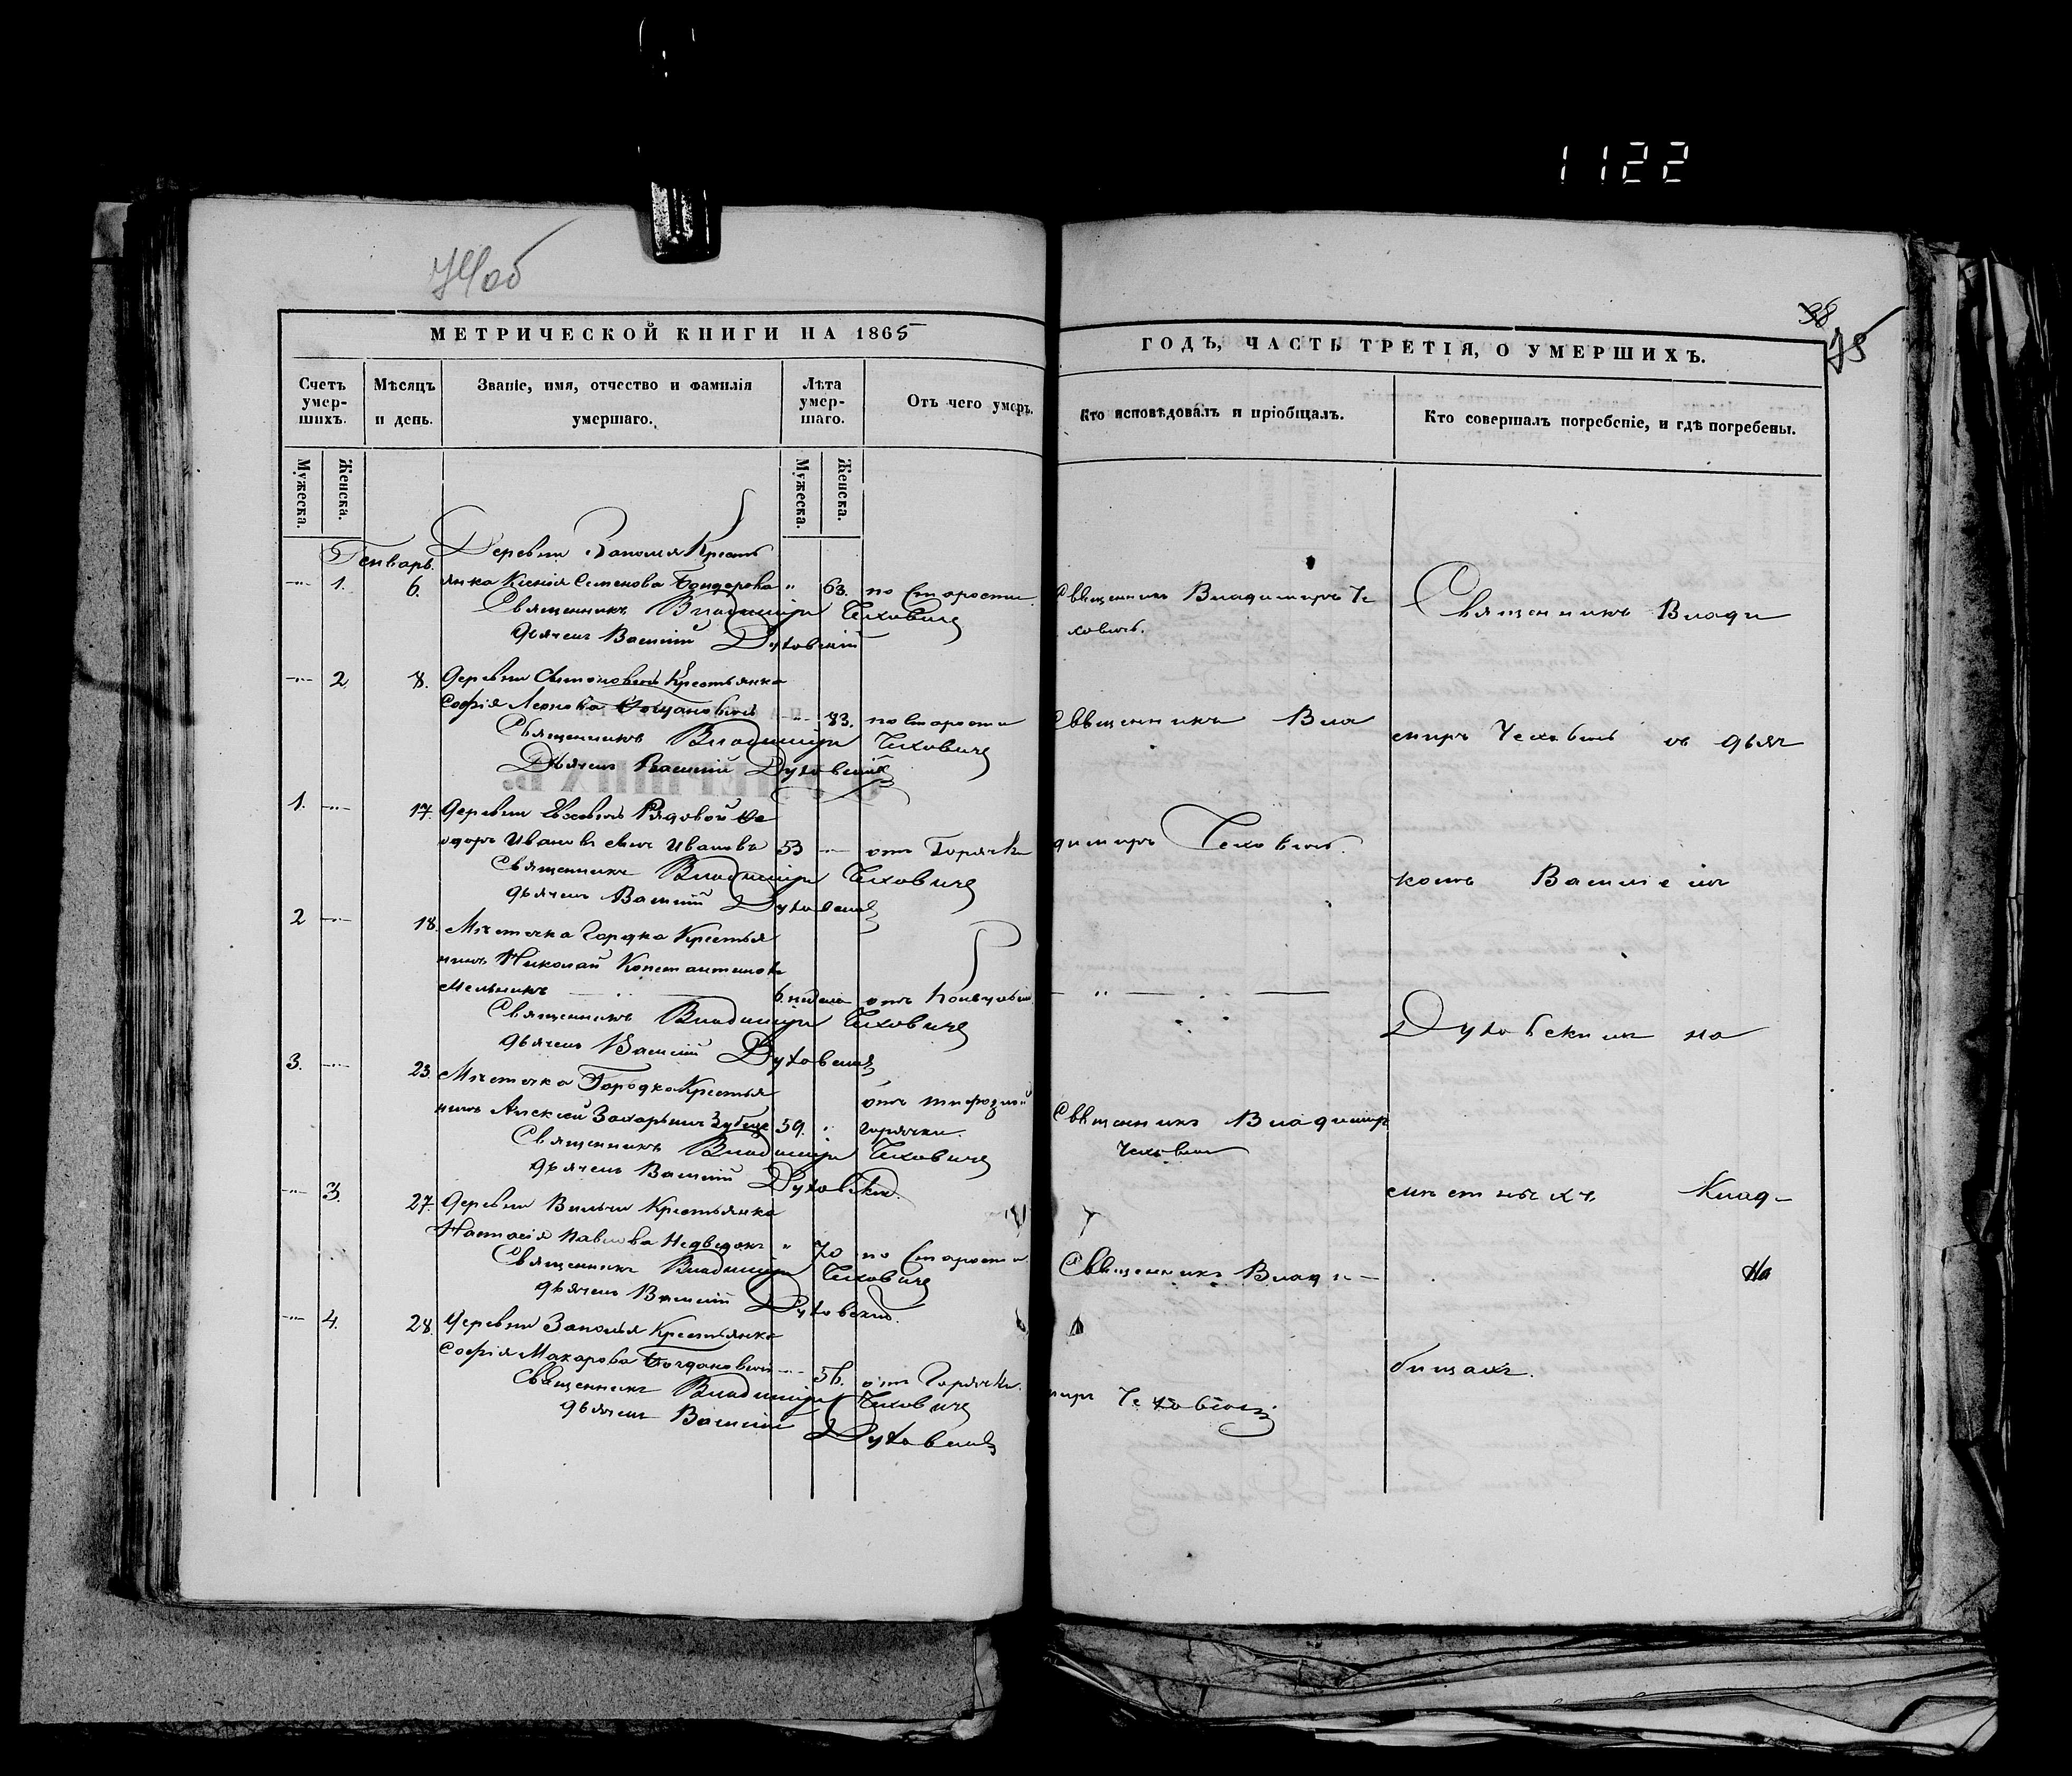 1122
МЕТРИЧЕСКОЙ КНИГИ НА 1865
Счетъ умер-шихъ.
Мѣсяцъ и день.
Званіе, имя, отчество и фамилія умершаго.
Лѣта умер-шаго.
Отъ чего умеръ.
Мужеска.
Женска.
Мужеска.
Женска.
Генварь. Деревни Заполья Кресть
1. 6. янка Ксенія Семенова Бондарева " 63. по Старости
Священникъ Владиміръ Чеховичъ
дьячекъ Василій Духовскій
2 8. Деревни Крестьянка
Софія Богдановичъ 83. по Старости
Священникъ Владиміръ Чеховичъ
Дьячекъ Василій Духовскій
1. 17. Деревни Рядовой Ѳе
одоръ Ивановъ сынъ Ивановъ 53 отъ Горячки
Священникъ Владиміръ Чеховичъ
дьячекъ Василій Духовскій
2 18. Мѣстечка Городка Крестья
нинъ Николай Константиновъ
Мельникъ 6 недель отъ
Священникъ Владиміръ Чеховичъ
дьячекъ Василій Духовскій
3. 23. Мѣстечка Городка Крестья
нинъ Алексѣй Захарьинъ 59. отъ тифозной горячки.
Священникъ Владиміръ Чеховичъ
дьячекъ Василій Духовскій
3. 27. Деревни Вильчи Крестьянка
Настасія Павлова " 70 по Старости
Священникъ Владиміръ Чеховичъ
дьячекъ Василій Духовскій
4. 28. Деревни Заполья Крестьянка
Софія Макарова Богдановичъ 56. отъ Горячки.
Священникъ Владиміръ Чеховичъ
дьячекъ Василій Духовскій
38
75
ГОДЪ, ЧАСТЬ ТРЕТІЯ, О УМЕРШИХЪ.
Кто исповѣдовалъ и пріобщалъ.
Кто совершалъ погребеніе, и гдѣ погребены.
Священникъ Владимиръ Че
ховичъ.
Священникъ Вла
димиръ Чеховичъ.
Священникъ Владимиръ
Чеховичъ
Священникъ Влади-
миръ Чеховичъ
Священникъ Влади
миръ Чеховичъ съ дьяч
комъ Василіемъ
Духовскимъ на
мѣстныхъ Клад-
На
бищахъ.